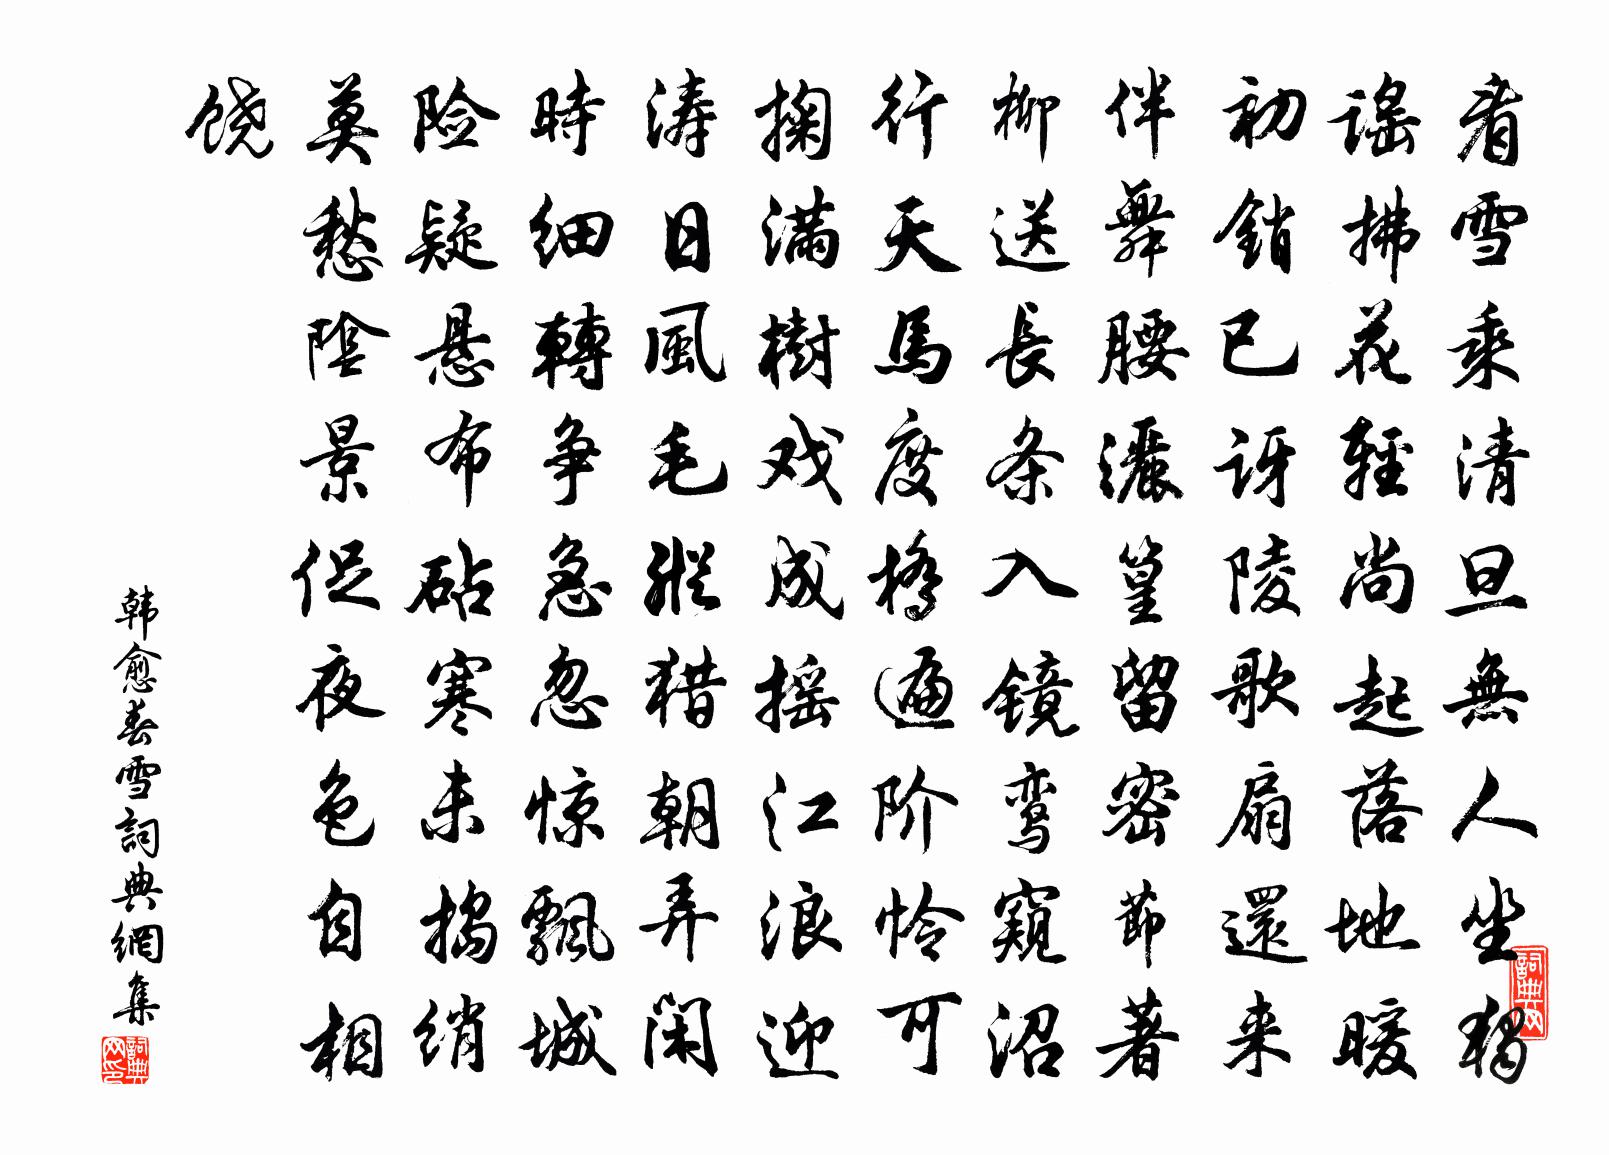 看雪乘清旦無人坐獨
謡拂花輕尚起落地暖
初銷已訝陵歌扇還来
伴舞腰灑篁留密節著
柳送長条入鏡鸾窺沼
行天馬度橋遍阶怜可
掬满樹戏成摇江浪迎
涛日風毛縱猎朝弄闲
時细轉争急忽惊飄城
险疑悬布砧寒未捣绡
莫愁陰景促夜色自相
饶
韩愈春雪詞典網集
詞典网
詞典网印